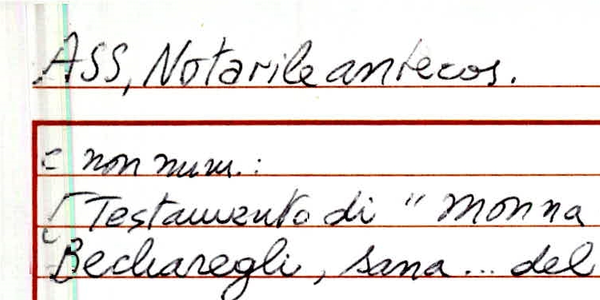 ASS, Notarile antecos.
c non num.:
[Testamento di "Monna
Becharegli, sana... del